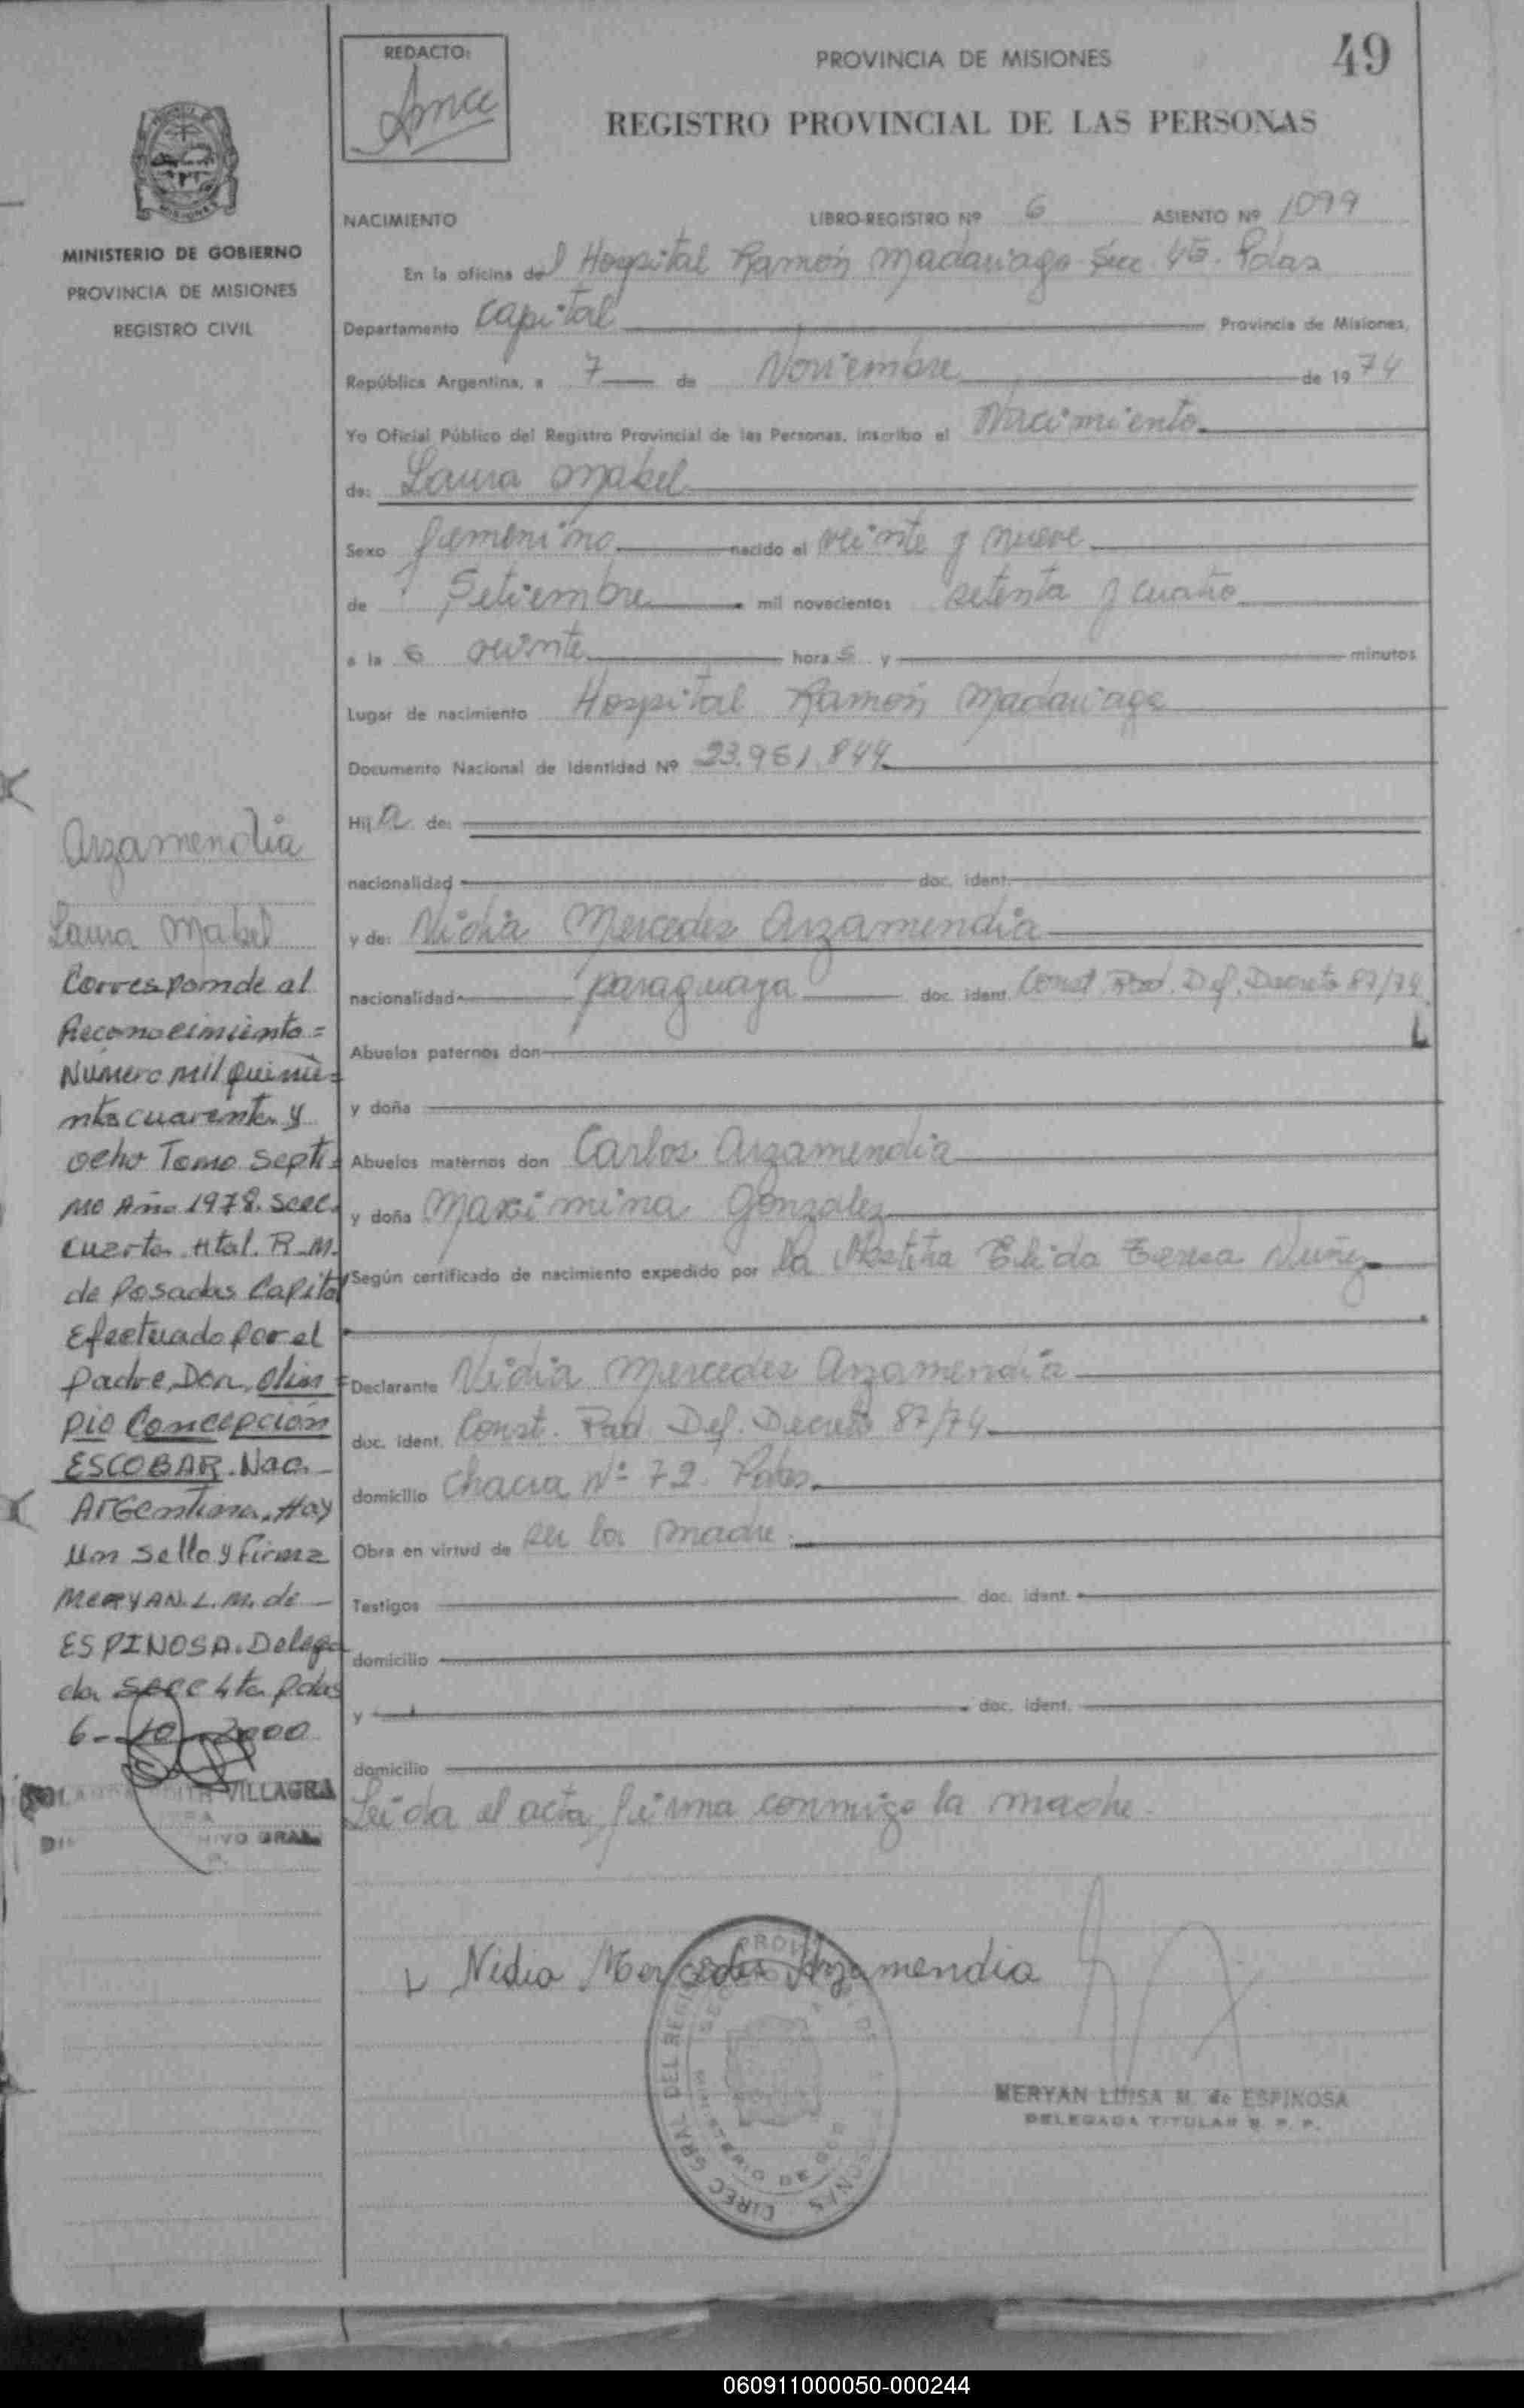 REDACTO:
PROVINCIA DE MISIONES
49
REGISTRO PROVINCIAL DE LAS PERSONAS
MISIONES
MINISTERIO DE GOBIERNO
PROVINCIA DE MISIONES
REGISTRO CIVIL
NACIMIENTO LIBRO-REGISTRO Nº 6 ASIENTO Nº 1099
En la oficina del Hospital Ramón Madariaga Sec 4ta. Pdas
Departamento Capital Provincia de Misiones,
República Argentina, a 7 de Noviembre de 1974
Yo Oficial Público del Registro Provincial de las Personas, inscribo el Nacimiento
de: Laura Mabel
Sexo femenino nacido el veinte y nueve
de Setiembre mil novecientos setenta y cuatro
a las veinte horas y minutos
Lugar de nacimiento Hospital Ramón Madariaga
Documento Nacional de Identidad Nº 23.951.844
Hija de:
nacionalidad doc. ident.
y de: Nidia Mercedes Arzamendia
nacionalidad paraguaya doc. ident. Const. Rad. Def. Decreto 87/74
Abuelos paternos don
y doña
Abuelos maternos don Carlos Arzamendia
y doña Maximina Gonzalez
Según certificado de nacimiento expedido por la Elida Teresa Nuñez
Declarante Nidia Mercedes Arzamendia
doc. ident. Const. Rad. Def. Decreto 87/74
domicilio Chacra Nº 72. Pdas.
Obra en virtud de ser la madre.
Testigos doc. ident.
domicilio
y doc. ident.
domicilio
Leida el acta firma conmigo la madre.
Nidia Mercedes Arzamendia
MERYAN LUISA M. de ESPINOSA
DELEGADA TITULAR R. P. P.
Arzamendia
Laura Mabel
Corresponde al
Reconocimiento =
Número mil quinie=
ntos cuarenta y
ocho Tomo Sépti=
mo Año 1978. Secc.
Cuarta Htal. R.M.
de Posadas Capital
Efectuado por el
padre, Don, Olim=
pio Concepción
ESCOBAR. Nac.
Argentina. Hay
un sello y firma
MERYAN. L. M. de
ESPINOSA. Delega
da Secc 4ta Pdas
6-10-2000
VILLAGRA
060911000050-000244